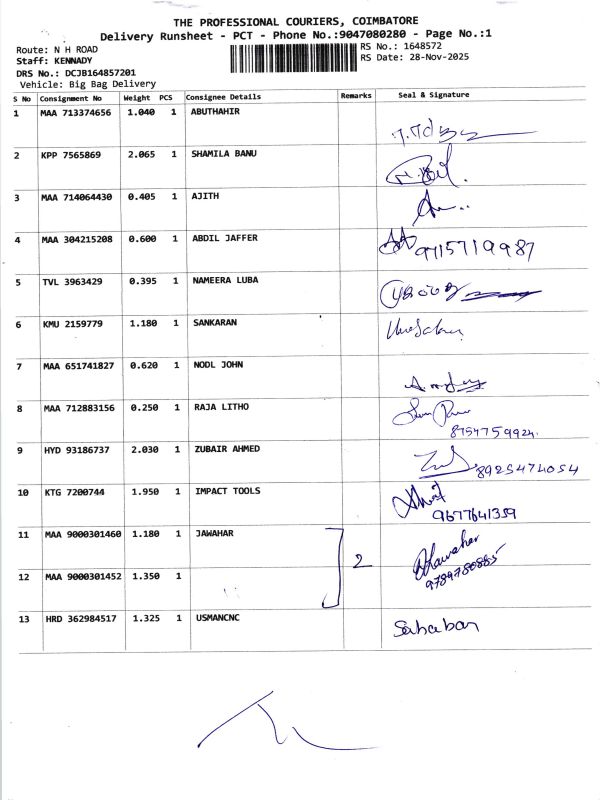 THE PROFESSIONAL COURIERS, COIMBATORE
Delivery Runsheet - PCT - Phone No.:9047080280 - Page No.:1
Route: N H ROAD
RS No.: 1648572
Staff: KENNADY
RS Date: 28-Nov-2025
DRS No.: DCJB164857201
Vehicle: Big Bag Delivery
S No Consignment No Weight PCS Consignee Details Remarks Seal & Signature
1 MAA 713374656 1.040 1 ABUTHAHIR
2 KPP 7565869 2.065 1 SHAMILA BANU
3 MAA 714064430 0.405 1 AJITH
4 MAA 304215208 0.600 1 ABDIL JAFFER
9715719987
5 TVL 3963429 0.395 1 NAMEERA LUBA
6 KMU 2159779 1.180 1 SANKARAN
7 MAA 651741827 0.620 1 NODL JOHN
8 MAA 712883156 0.250 1 RAJA LITHO
8754759924
9 HYD 93186737 2.030 1 ZUBAIR AHMED
8925474054
10 KTG 7200744 1.950 1 IMPACT TOOLS
9677641359
11 MAA 9000301460 1.180 1 JAWAHAR
2
Jawahar
9789780885
12 MAA 9000301452 1.350 1
13 HRD 362984517 1.325 1 USMANCNC
Sahaban